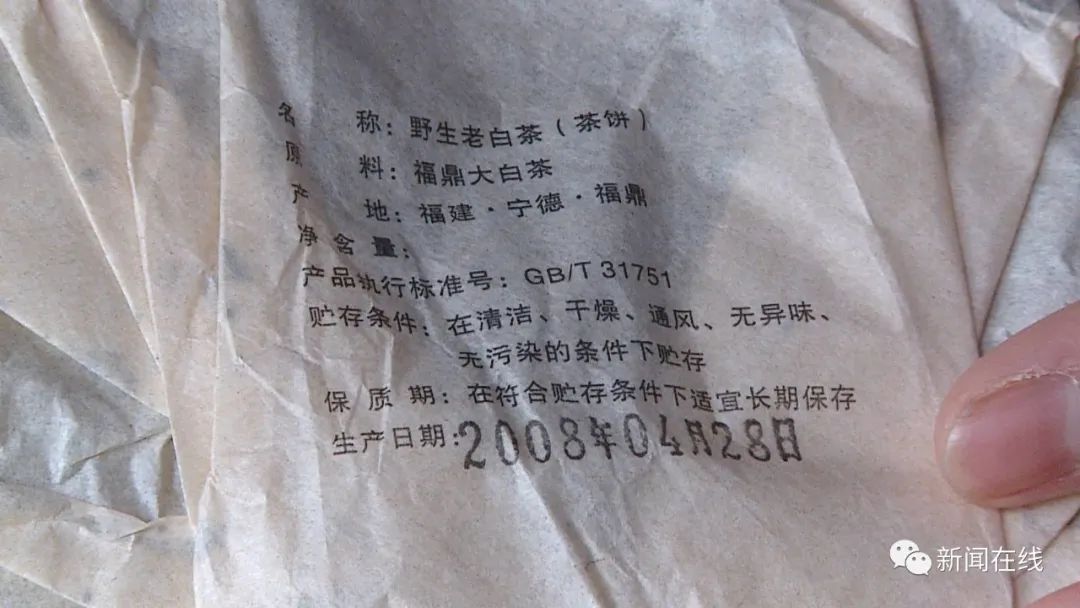 名称：野生老白茶（茶饼）
原料：福鼎大白茶
产地：福建·宁德·福鼎
净含量：
产品执行标准号：GB/T 31751
贮存条件：在清洁、干燥、通风、无异味、
无污染的条件下贮存
保质期：在符合贮存条件下适宜长期保存
生产日期：2008年04月28日
新闻在线